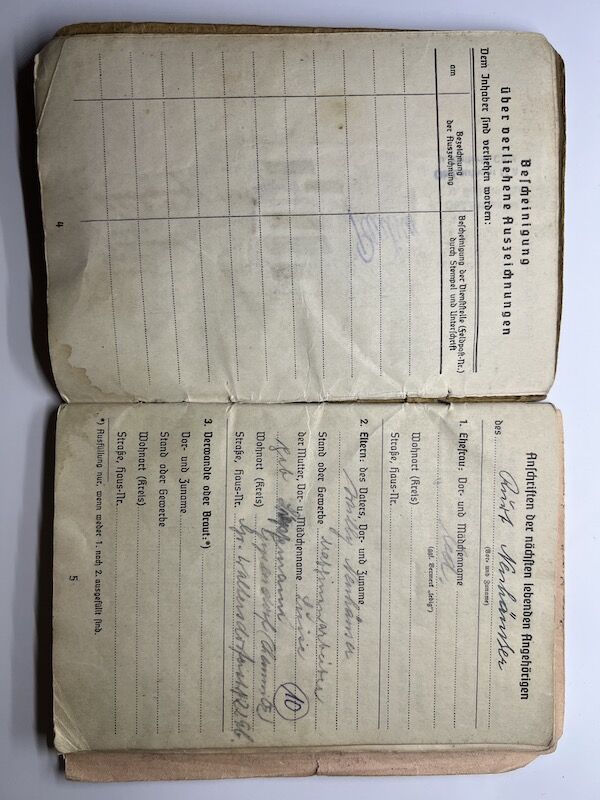 Bescheinigung
über verliehene Auszeichnungen
Dem Inhaber sind verliehen worden:
am
Bezeichnung
der Auszeichnung
Bescheinigung der Dienststelle (Feldpost-Nr.)
durch Stempel und Unterschrift
4
Anschriften der nächsten lebenden Angehörigen
des Kurt Neuhäuser
(Vor- und Zuname)
1. Ehefrau: Vor- und Mädchenname
(ggf. Vermerk „ledig“)
led.
Wohnort (Kreis)
Straße, Haus-Nr.
2. Eltern: des Vaters, Vor- und Zuname
Neuhäuser
Stand oder Gewerbe
der Mutter, Vor- u. Mädchenname
geb.
10
Wohnort (Kreis) (Chemnitz)
Straße, Haus-Nr.
3. Verwandte oder Braut:*)
Vor- und Zuname
Stand oder Gewerbe
Wohnort (Kreis)
Straße, Haus-Nr.
*) Ausfüllung nur, wenn weder 1. noch 2. ausgefüllt sind.
5